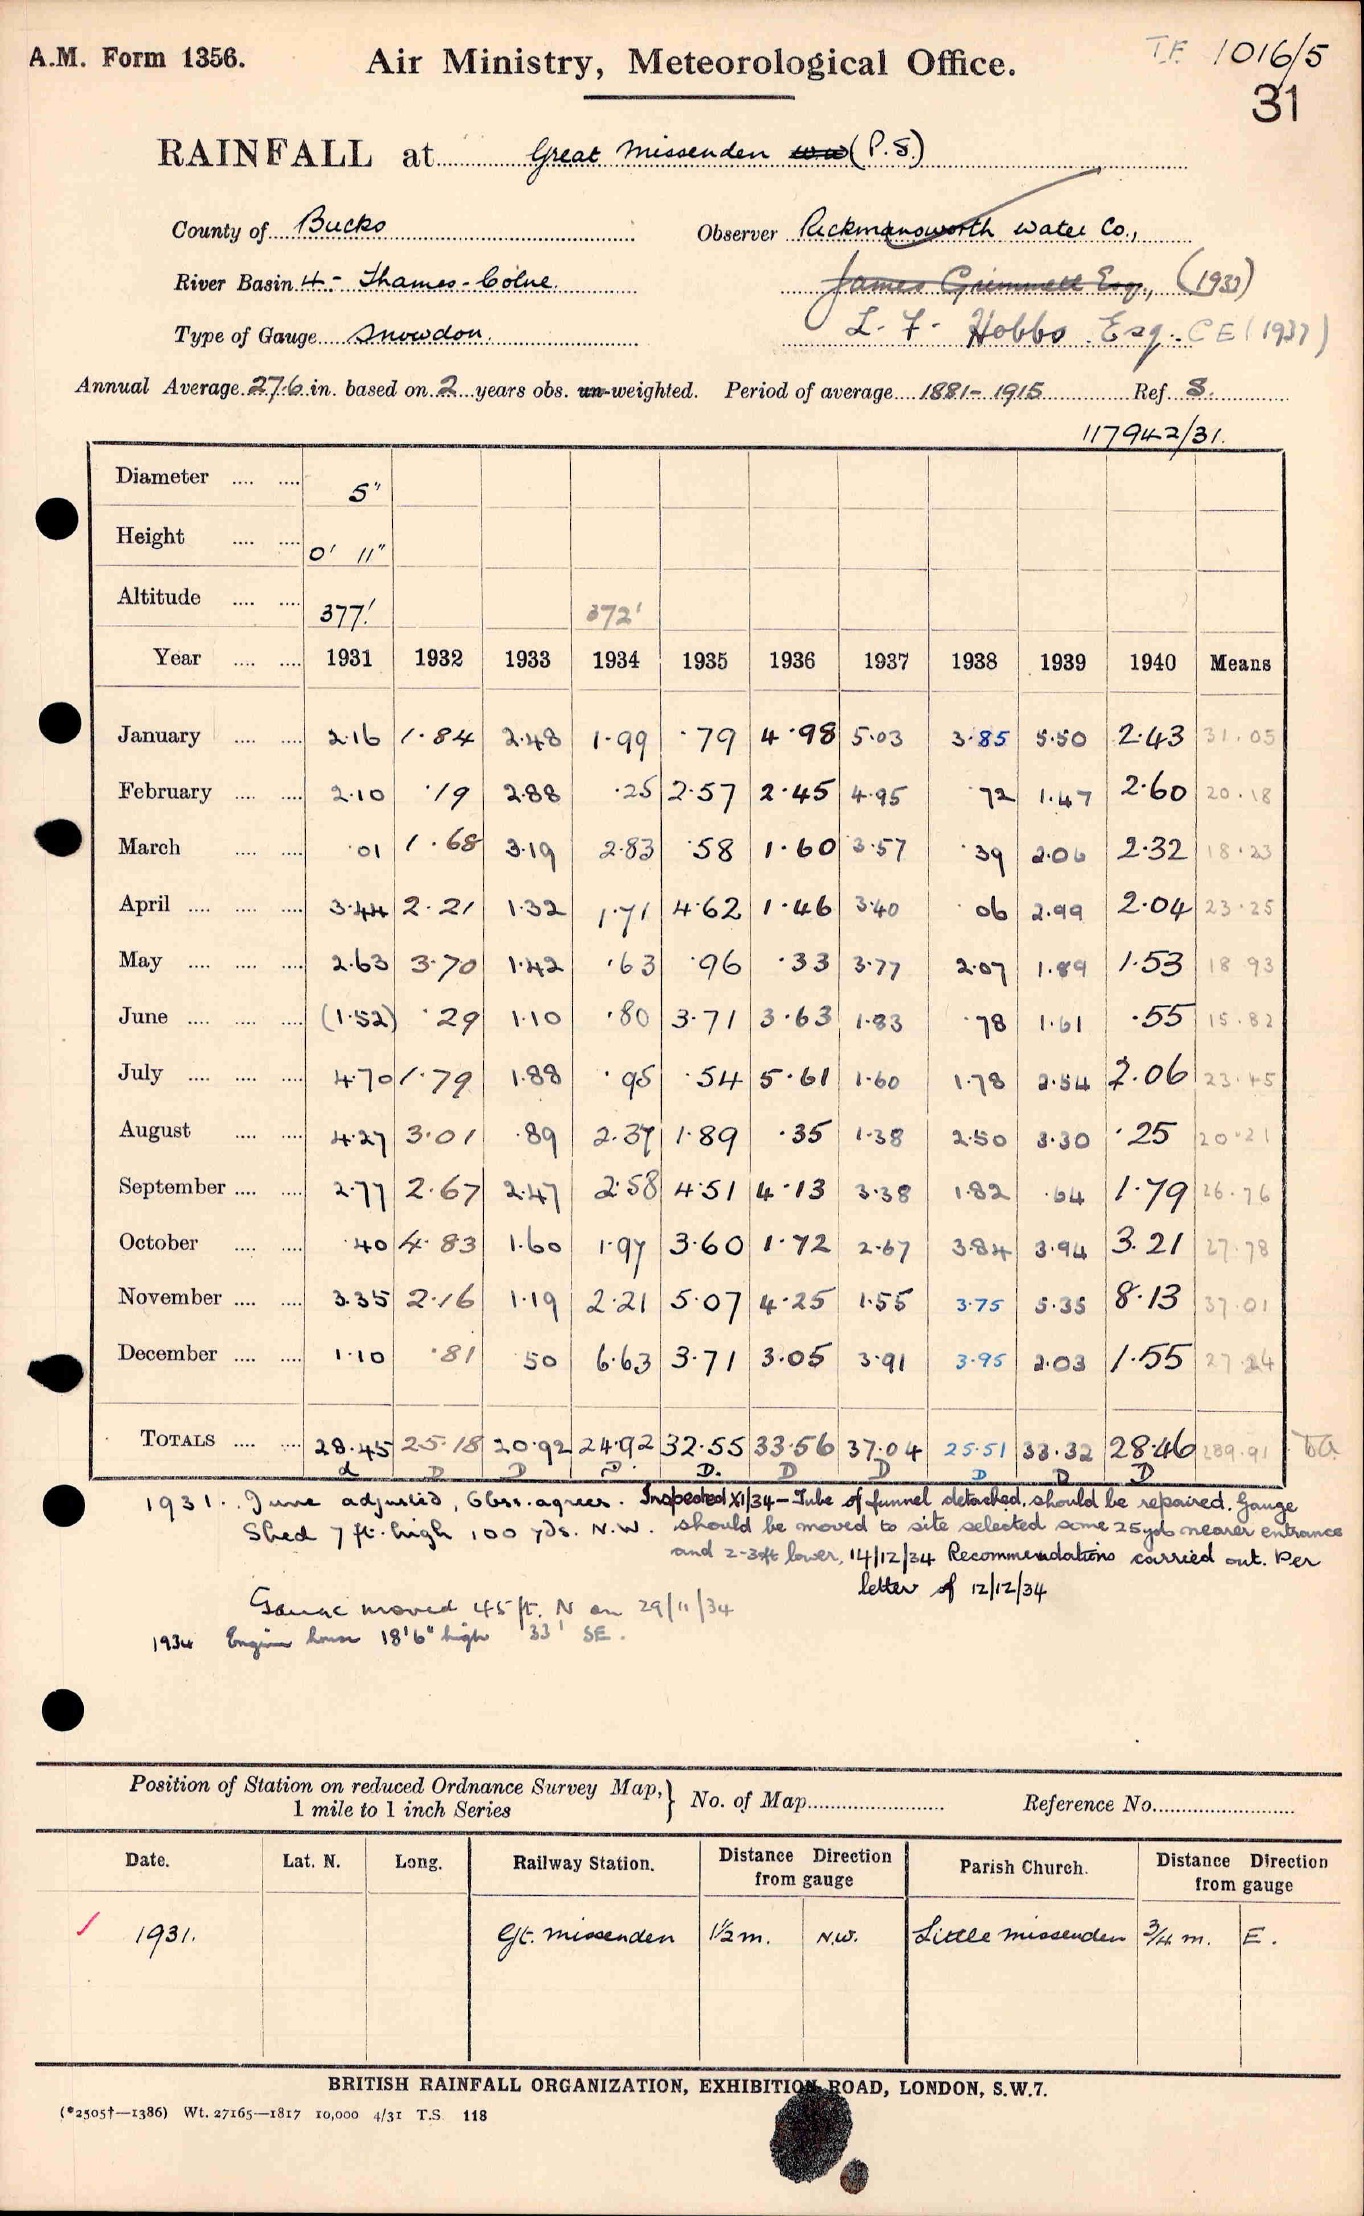 A.M. Form 1356.
Air Ministry, Meteorological Office.
T.F. 1016/5
31
RAINFALL at Great Missenden ww (P.S.)
County of Bucks
Observer Rickmansworth Water Co.,
River Basin 4 - Thames - Colne.
James Grimmett Esq., (1933)
Type of Gauge Snowdon.
L. F. Hobbs Esq. CE (1937)
Annual Average 27.6 in. based on 2 years obs. un-weighted. Period of average 1881-1915 Ref. S.
117942/31.
Diameter 5"
Height 0' 11"
Altitude 377' 372'
Year 1931 1932 1933 1934 1935 1936 1937 1938 1939 1940 Means
January 2.16 1.84 2.48 1.99 .79 4.98 5.03 3.85 5.50 2.43 31.05
February 2.10 .19 2.88 .25 2.57 2.45 4.95 .72 1.47 2.60 20.18
March .01 1.68 3.19 2.83 .58 1.60 3.57 .39 2.06 2.32 18.23
April 3.44 2.21 1.32 1.71 4.62 1.46 3.40 .06 2.99 2.04 23.25
May 2.63 3.70 1.42 .63 .96 .33 3.77 2.07 1.89 1.53 18.93
June (1.52) .29 1.10 .80 3.71 3.63 1.83 .78 1.61 .55 15.82
July 4.70 1.79 1.88 .95 .54 5.61 1.60 1.78 2.54 2.06 23.45
August 4.27 3.01 .89 2.37 1.89 .35 1.38 2.50 3.30 .25 20.21
September 2.77 2.67 2.47 2.58 4.51 4.13 3.38 1.82 .64 1.79 26.76
October .40 4.83 1.60 1.97 3.60 1.72 2.67 3.84 3.94 3.21 27.78
November 3.35 2.16 1.19 2.21 5.07 4.25 1.55 3.75 5.35 8.13 37.01
December 1.10 .81 .50 6.63 3.71 3.05 3.91 3.95 2.03 1.55 27.24
TOTALS 28.45 25.18 20.92 24.92 32.55 33.56 37.04 25.51 33.32 28.46 289.91
d D D D. D. D D D D D
1931. June adjusted, Obsr. agrees. Inspected XI/34 - Tube of funnel detached, should be repaired. Gauge
Shed 7 ft. high 100 yds. N.W. should be moved to site selected some 25 yds nearer entrance
and 2-3ft lower, 14/12/34 Recommendations carried out. Per
letter of 12/12/34
Gauge moved 45 ft. N on 29/11/34
1934 Engine house 18'6" high 33' SE.
Position of Station on reduced Ordnance Survey Map, 1 mile to 1 inch Series } No. of Map Reference No.
Date. Lat. N. Long. Railway Station. Distance Direction from gauge Parish Church. Distance Direction from gauge
1931. Gt. Missenden 1½ m. N.W. Little Missenden ¾ m. E.
BRITISH RAINFALL ORGANIZATION, EXHIBITION ROAD, LONDON, S.W.7.
(*2505†—1386) Wt. 27165—1817 10,000 4/31 T.S. 118